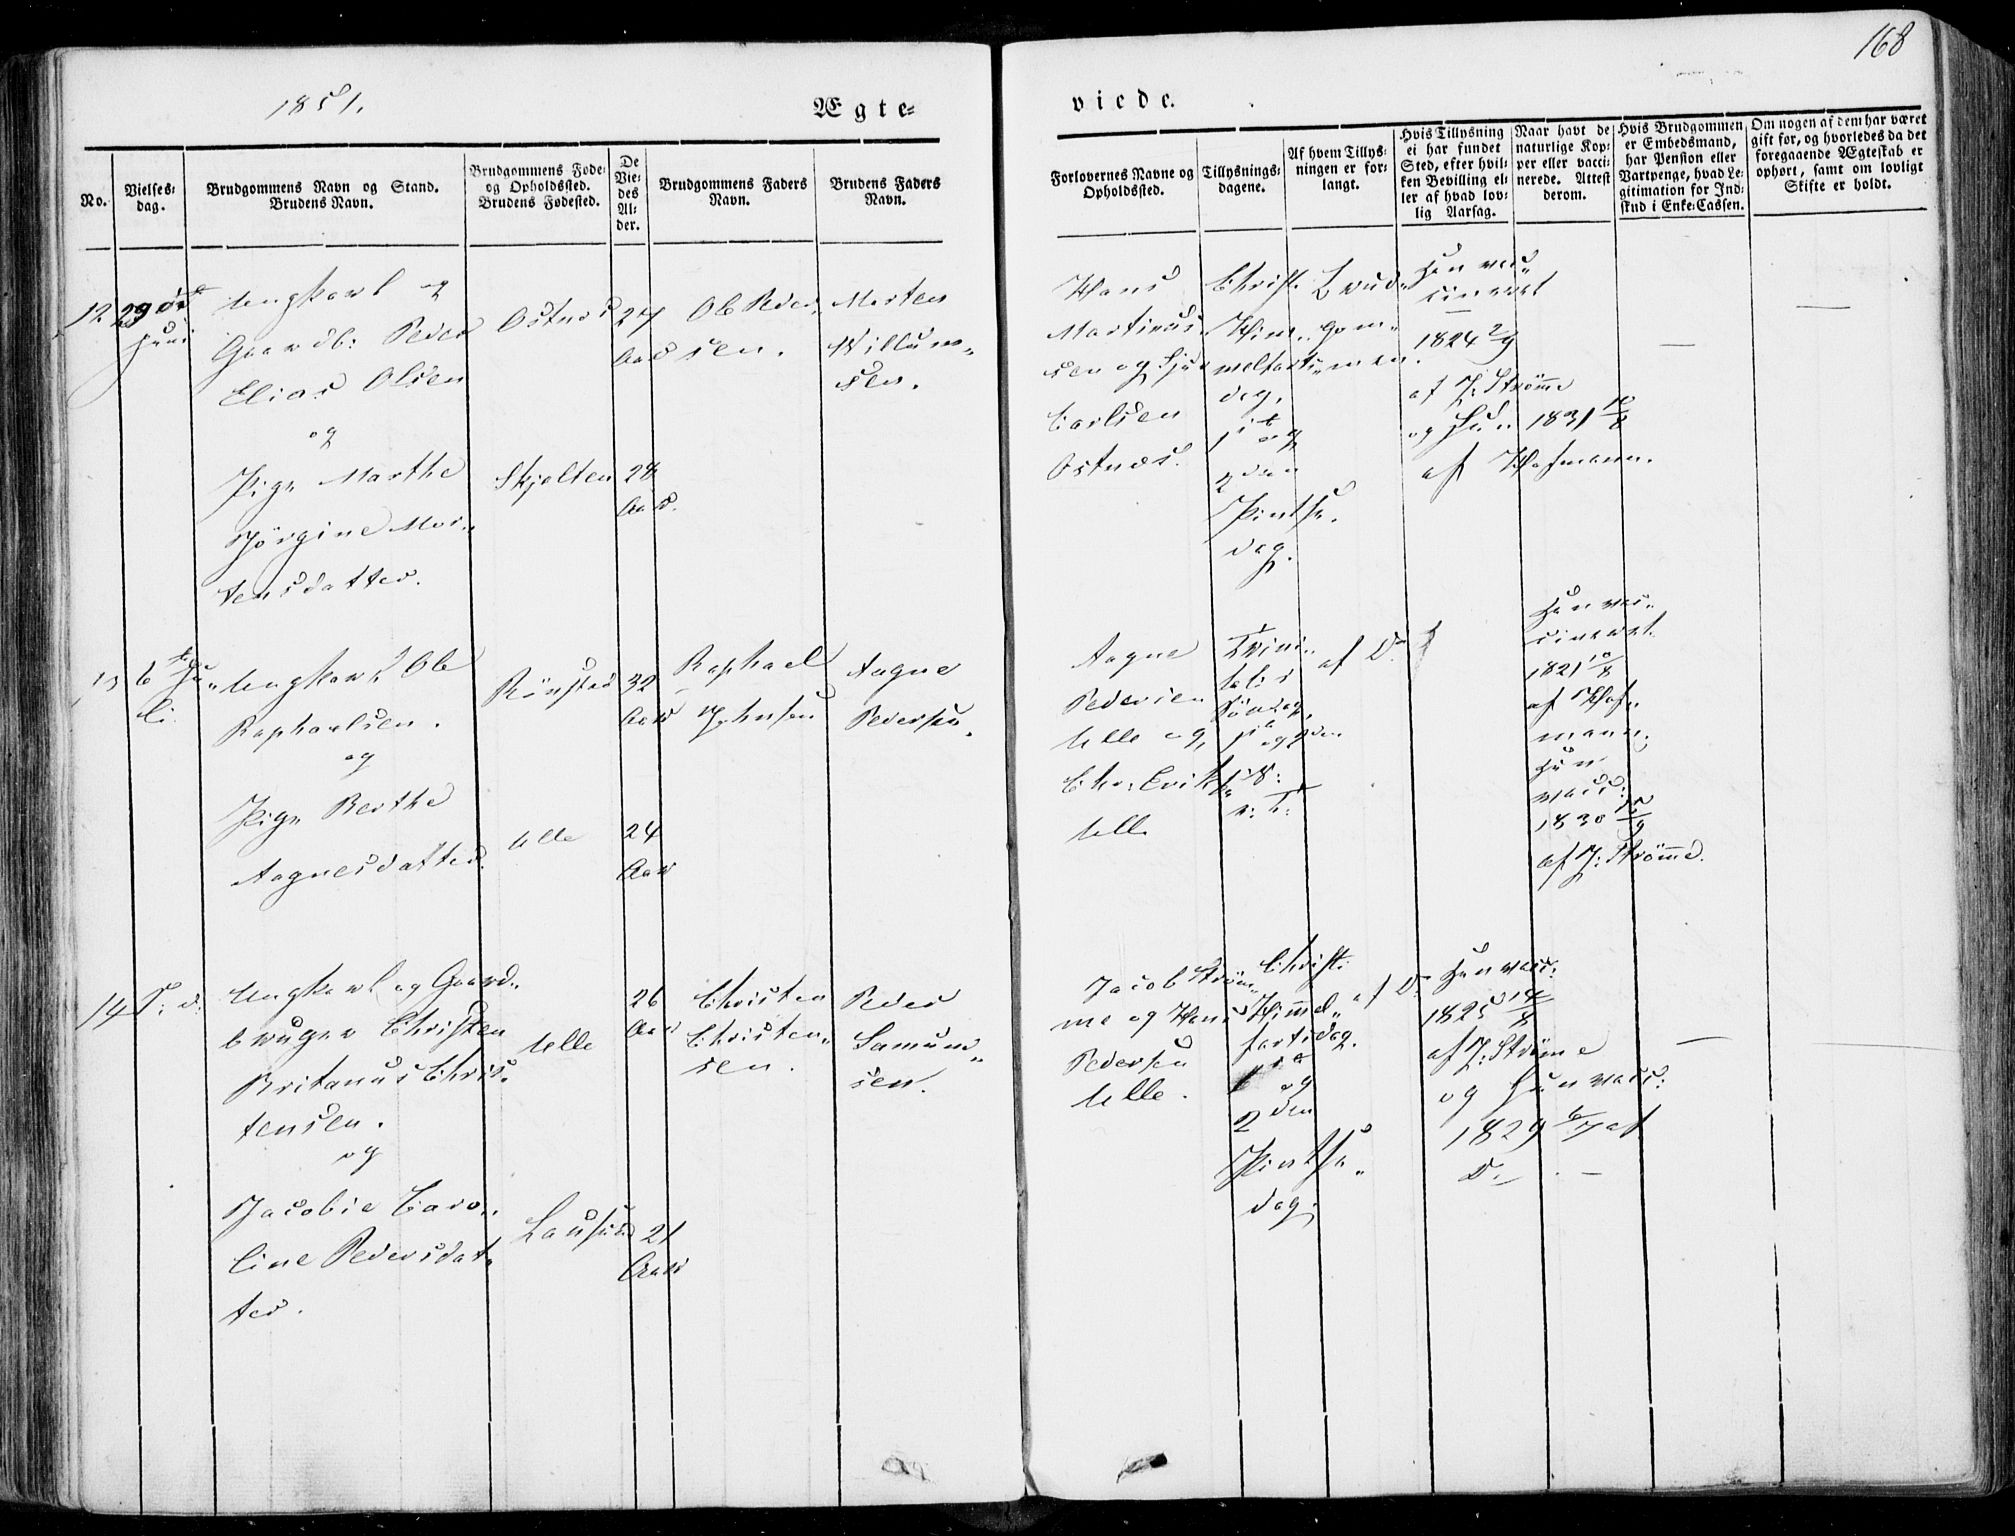 168
1851.
Ægte=
viede.
No.
Vielses=
dag.
Brudgommens Navn og Stand.
Brudens Navn.
Brudgommens Føde=
og Opholdssted.
Brudens Fødested.
De
Vie=
des
Al=
der.
Brudgommens Faders
Navn.
Brudens Faders
Navn.
Forlovernes Navne og
Opholdssted.
Tillysnings=
dagene.
Af hvem Tillys=
ningen er for=
langt.
Hvis Tillysning
ei har fundet
Sted, efter hvil=
ken Bevilling el=
ler af hvad lov=
lig Aarsag.
Naar havt de
naturlige Kop=
per eller vacci=
nerede. Attest
derom.
Hvis Brudgommen
er Embedsmand,
har Pension eller
Vartpenge, hvad Le=
gitimation for Ind=
skud i Enke=Cassen.
Om nogen af dem har været
gift før, og hvorledes da det
foregaaende Ægteskab er
ophørt, samt om lovligt
Skifte er holdt.
12
29
Juni
Ungkarl og
Gaardb: Peder
Elias Olsen
og
Pige Marthe
Jörgine Mor„
tensdatter.
Ostnes
Skjelten
27
Aar
28
Aar.
Ole Peder„
sen.
Morten
Willum„
sen.
Hans
Martinus„
sen og
Carlsen
Ostnes.
Christi
Him„
melfarts„
dag,
1ste og
2den
Pintse„
dag.
Brud„
gom„
men.
Han vac„
cineret
1824 2/9
af J. Strømme
og Hun 1831 10/8
af Hofmann.
13
6te Ju„
li.
Ungkarl Ole
Raphaelsen.
og
Pige Berthe
Aagnesdatter.
Rönstad
Ulle
32
Aar
24
Aar
Raphael
Johnsen
Aagne
Pedersen.
Aagne
Pedersen
Ulle og
Chr: Erik
Ulle
Trini„
tatis
Söndag,
1ste og 2den
S:
e: T:
af Do
Han vac„
cineret
1821 10/8
af Hof„
mann.
Hun
vacc:
1830
af J: Strømme.
14
S: D:
Ungkarl og Gaard„
bruger Christen
Britanus Chris„
tensen.
og
Jacobie Caro„
line Pedersdat„
ter.
Ulle
Lausund
26
Aar
21
Aar
Christen
Christen„
sen.
Peder
Samuns„
sen.
Jacob Ström„
me og Hans
Pedersen
Ulle.
Christi
Himmel„
fartsdag.
1ste
og
2den
Pintse„
dag.
af Do
Han vacc:
1825 14/8
af J: Strømme
og Hun vacc:
1829 6/7 af
Do.